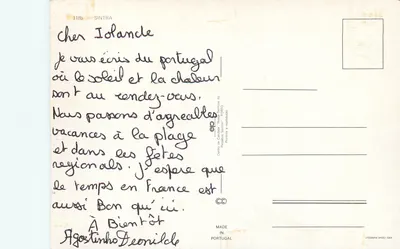 SINTRA
cher Iolande
je vous écris du portugal
où le soleil et la chaleur
sont au rendez-vous.
Nous passons d'agréables
vacances à la plage
et dans les fêtes
regionals. j'espre que
le temps en France est
aussi Bon qu'ici.
À Bientôt
Agostinho Deonilde
MADE
IN
PORTUGAL